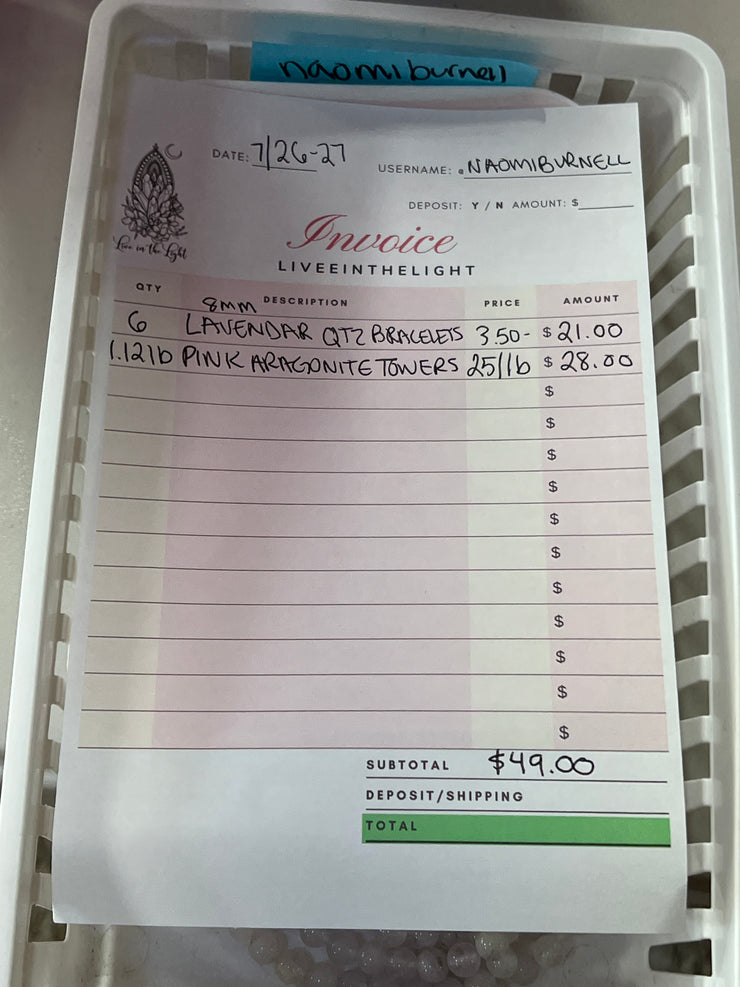 naomiburnell
DATE: 7/26-27
USERNAME: @NAOMIBURNELL
DEPOSIT: Y / N AMOUNT: $
Live in the Light
Invoice
LIVEEINTHELIGHT
QTY DESCRIPTION PRICE AMOUNT
6 8MM LAVENDAR QTZ BRACELETS 3.50- $21.00
1.12lb PINK ARAGONITE TOWERS 25/lb $28.00
$
$
$
$
$
$
$
$
$
$
$
SUBTOTAL $49.00
DEPOSIT/SHIPPING
TOTAL